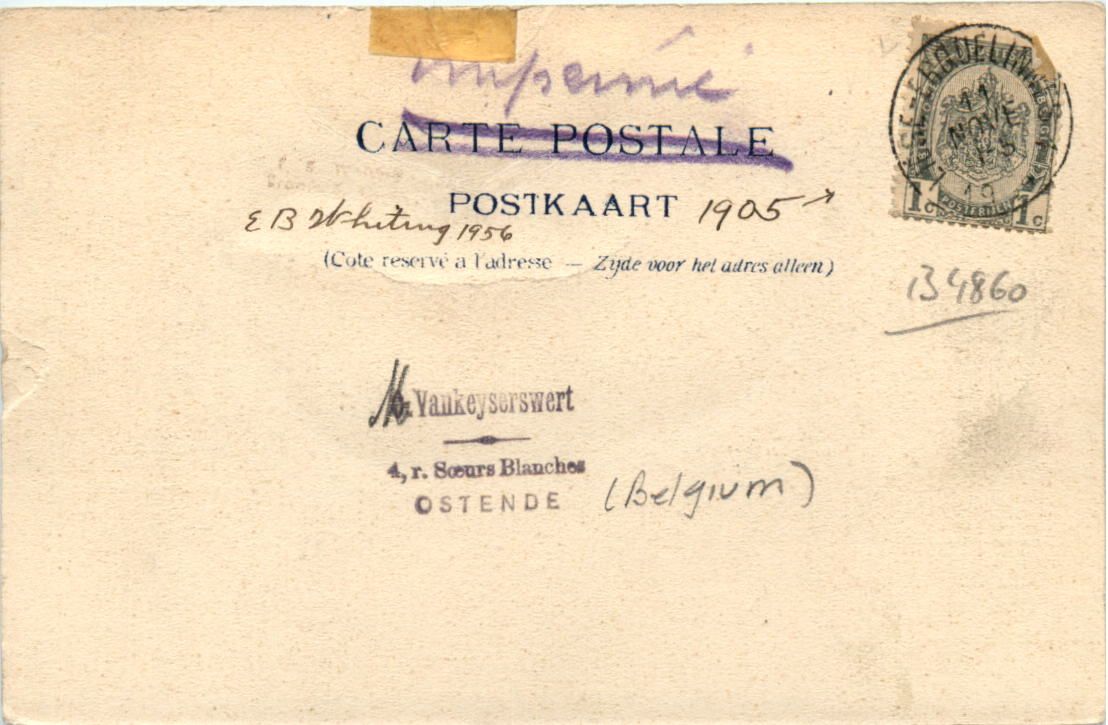 Imprimé
CARTE POSTALE
POSTKAART 1905
E B Whiting 1956
(Cote reservé a l'adresse — Zijde voor het adres alleen)
11
NOVE
1 C POSTERIJEN 1 C
B4860
M. Vankeyserswert
4, r. Sœurs Blanches
OSTENDE (Belgium)